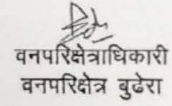 वनपरिक्षेत्राधिकारी
वनपरिक्षेत्र बुढेरा